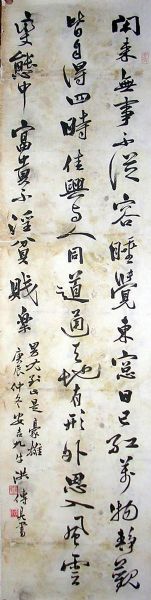 閑来無事不從容睡覺東窓日已紅萬物靜觀
皆自得四時佳興与人同道通天地有形外思入風雲
變態中富貴不淫貧賤樂
男兒到此是豪雄
庚辰仲冬安吉九牛洪傳書